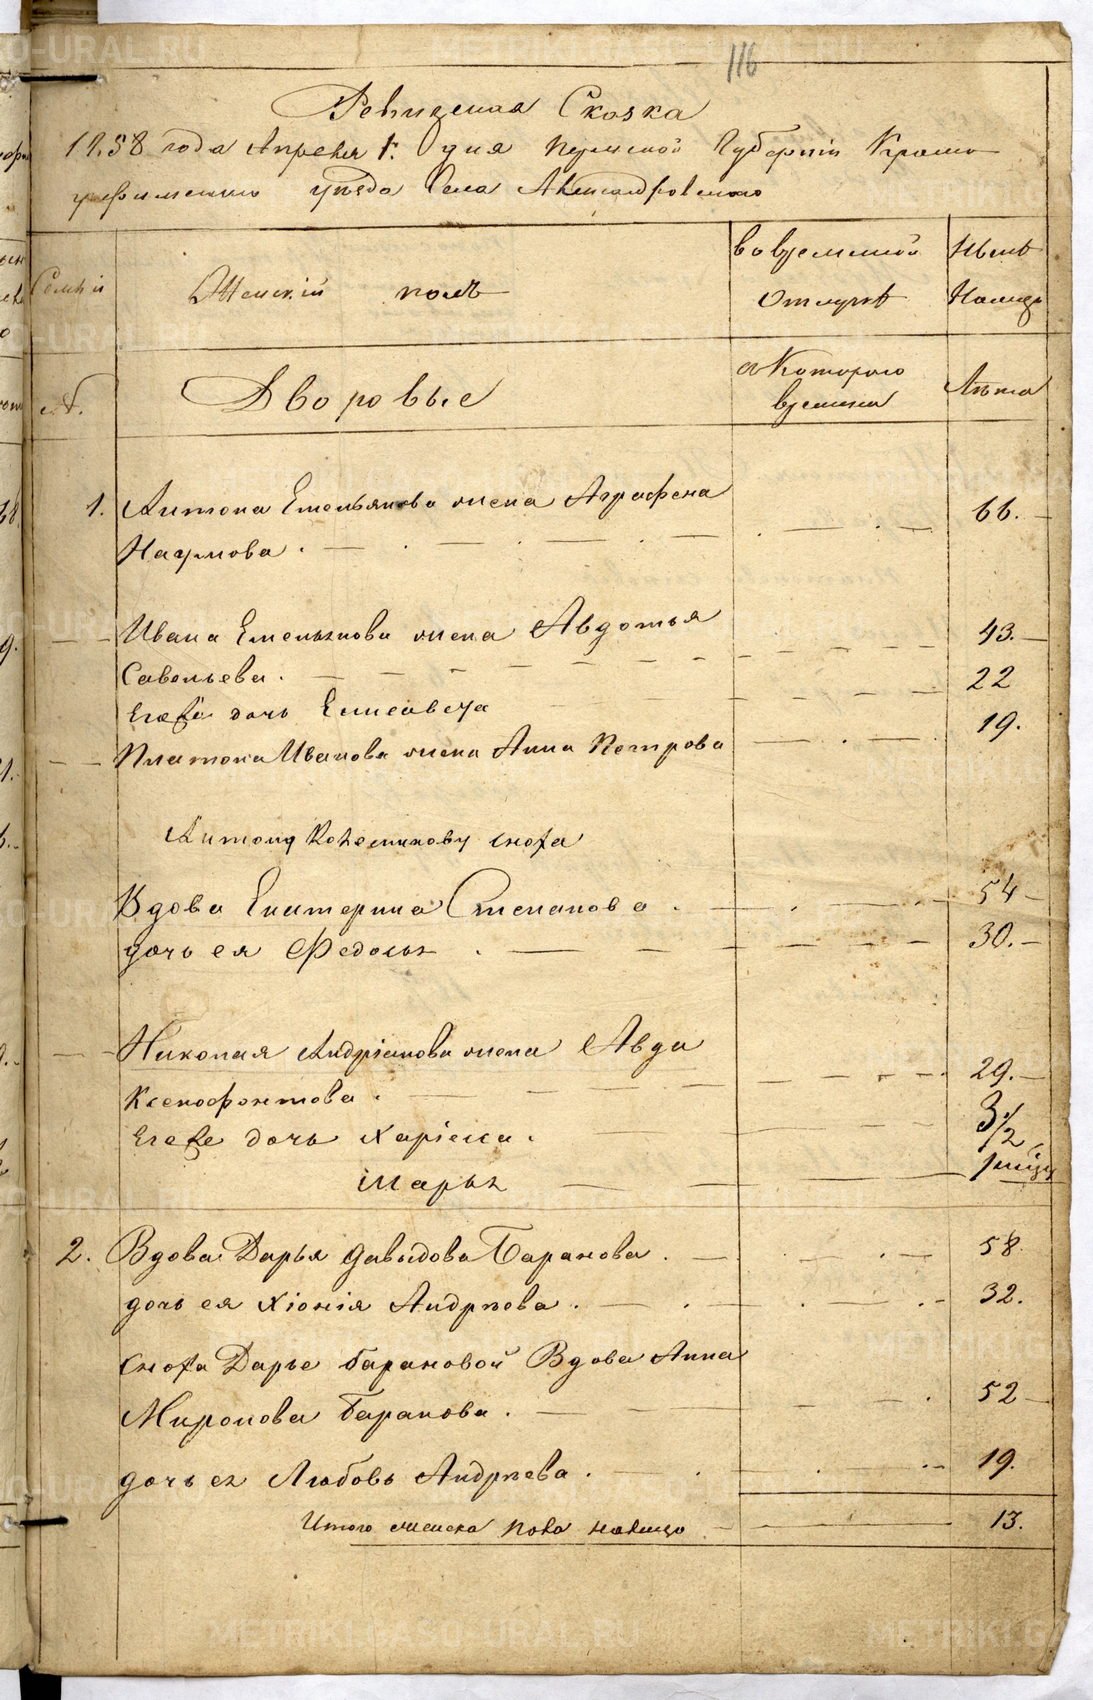 116
Ревизская Сказка
1858 года Апреля 1. дня Пермской Губерніи Красно
уфимскаго уѣзда Села Александровскаго
Семьи
Женскій полъ
во временной
Отлучкѣ
Нынѣ
На лицо
№.
Дворовые
съ Котораго
времени
Лѣта
1. Антона Емельянова жена Аграфена 66.
Наумова.
Ивана Емельянова жена Авдотья 43.
Савельева. 22
Его дочь Елисавета 19.
Платона Иванова жена Анна Петрова
Антону сноха
Вдова Екатерина Степанова. 54
дочь ея Федосья. 30.
Николая Андріанова жена Авда
Ксенофонтова. 29.
Его дочь 3 1/2
Марья
2. Вдова Дарья Давыдова Баранова. 58
дочь ея Хіонія Андрѣева. 32.
сноха Дарье Барановой Вдова Анна
Миронова Баранова. 52
дочь ея Любовь Андрѣева. 19.
Итого женска пола налицо 13.
METRIKI.GASO-URAL.RU